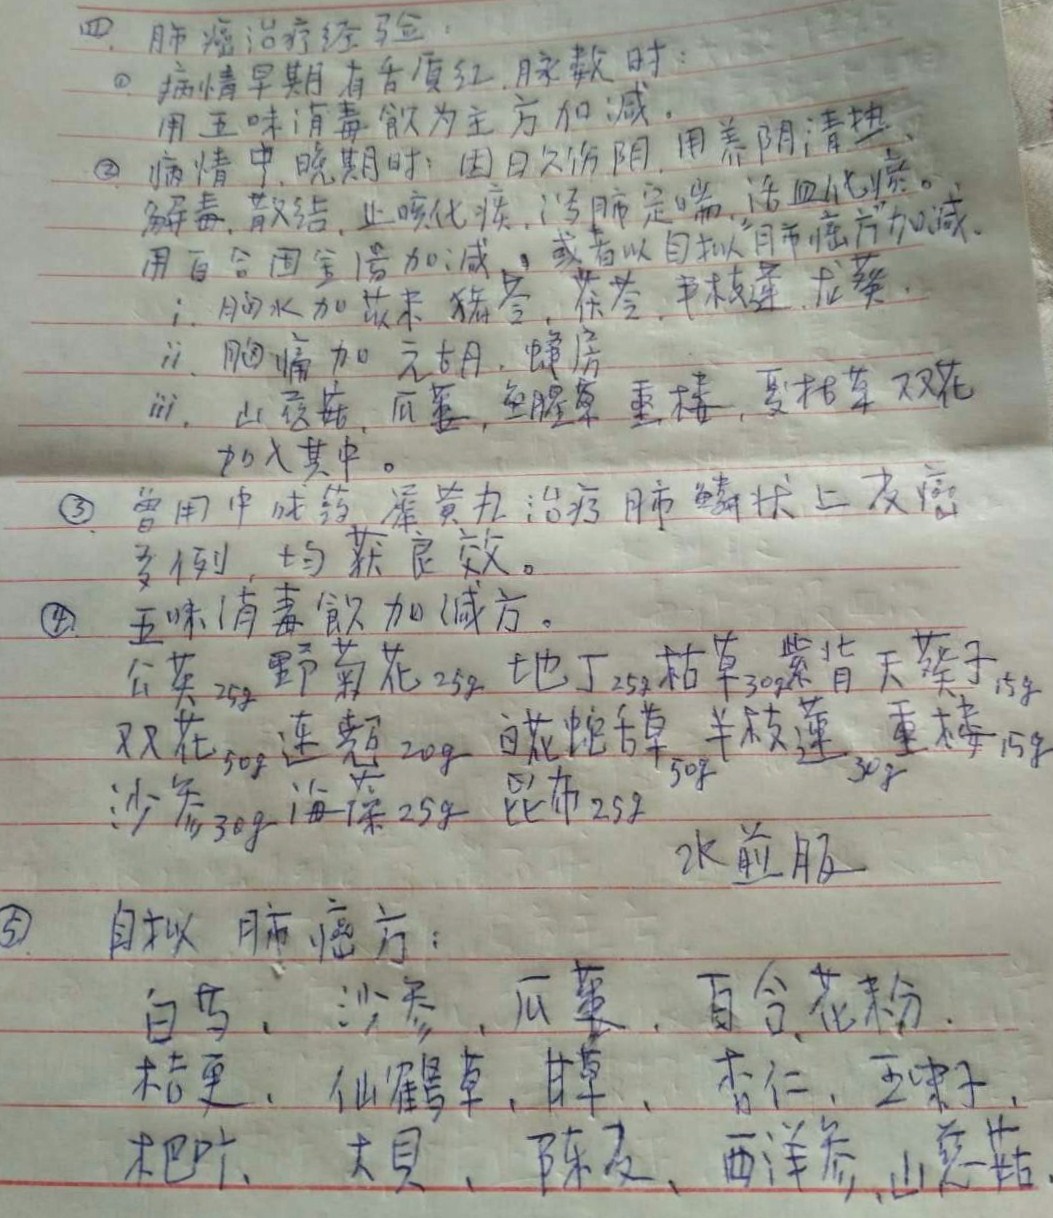 四. 肺癌治疗经验:
① 病情早期有舌质红、脉数时:
用五味消毒飲为主方加减.
② 病情中、晚期时: 因日久伤阴, 用养阴清热、
解毒、散结、止咳化痰、泻肺定喘、活血化瘀。
用百合固金湯加减, 或者以自拟“肺癌方”加减.
i. 胸水加莪术 猪苓、茯苓、半枝莲、龙葵.
ii. 胸痛加 元胡、蜂房
iii. 山慈菇、瓜蒌、鱼腥草 重楼、夏枯草 双花
加入其中。
③ 曾用中成药 犀黄丸 治疗肺鳞状上皮癌
多例, 均获良效。
④ 五味消毒飲加减方。
公英25g 野菊花25g 地丁25g 枯草30g 紫背天葵子15g
双花50g 连翘20g 白花蛇舌草50g 半枝蓮30g 重楼15g
沙参30g 海藻25g 昆布25g
水煎服
⑤ 自拟 肺癌方:
白芍、沙参、瓜蒌、百合、花粉.
桔更、仙鹤草、甘草、杏仁、五味子、
杷叶、大贝、陈皮、西洋参、山慈菇、